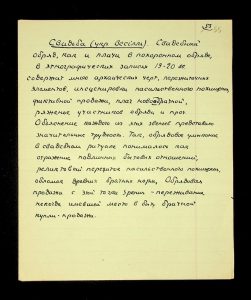 53
Свадьба (укр. Весілля). Свадебный
обряд, как и плачи в похоронном обряде,
в этнографических записях 19-20 вв
содержат много архаических черт, пережиточных
элементов, инсценировки насильственного похищения,
фиктивной продажи, плач новобрачной,
ряжение участников обряда и проч.
Объяснение каждого из этих звеньев представляет
значительные трудности. Так, обрядовое умыкание
в свадебном ритуале понималось как
отражение подлинных бытовых отношений,
реликтовой пережиток насильственного похищения,
обломок древних брачных норм. Обрядовая
продажа с этой точки зрения - переживание
некогда имевшей место в быту брачной
купли-продажи.